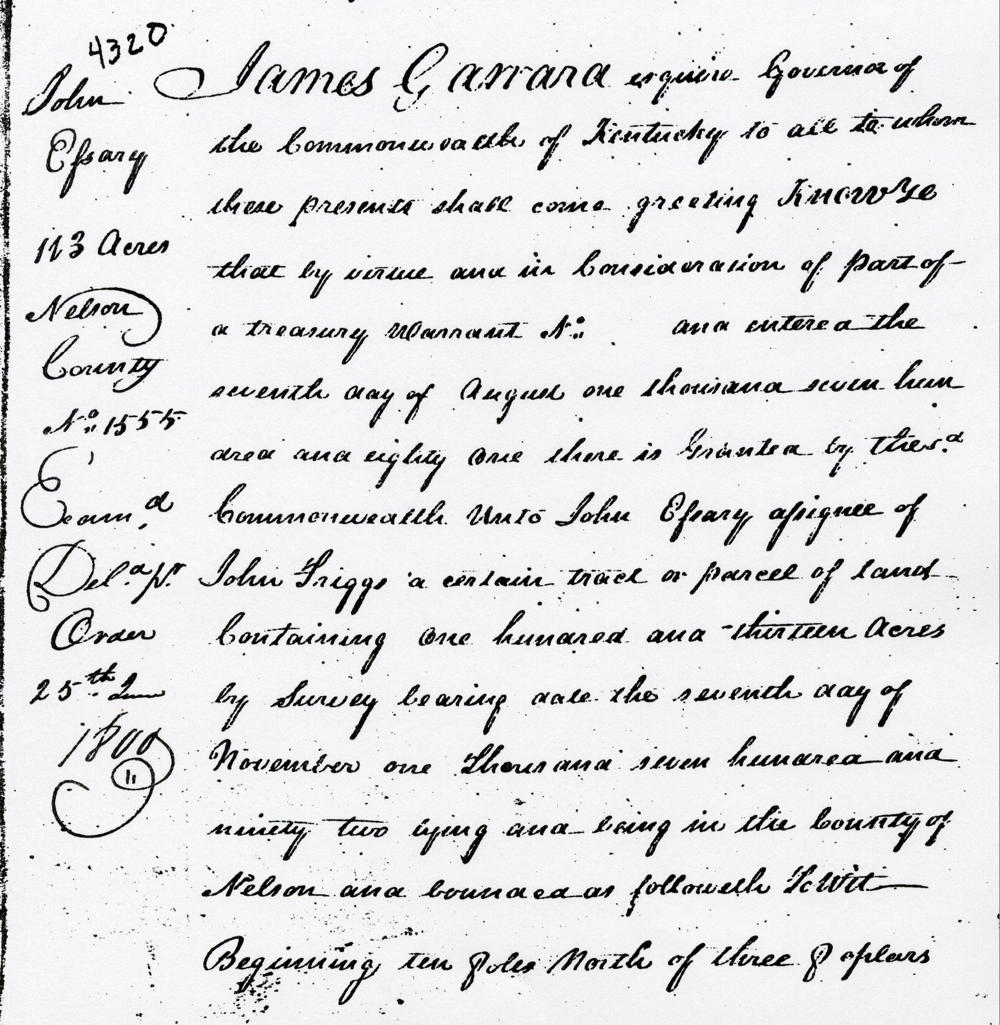 4320
John
Essary
113 Acres
Nelson
County
No. 1555
Exam.d
Del.d pr
Order
25th June
1800
11
James Garrard esquire Governor of
the Commonwealth of Kentucky to all to whom
these presents shall come greeting Know Ye
that by virtue and in Consideration of part of
a treasury Warrant No. and entered the
seventh day of August one thousand seven hun
dred and eighty one there is Granted by the sd.
Commonwealth Unto John Essary assignee of
John Triggs a certain tract or parcel of land
Containing One hundred and thirteen Acres
by Survey bearing date the seventh day of
November one Thousand seven hundred and
ninety two lying and being in the County of
Nelson and bounded as followeth To Wit
Beginning ten Poles North of three Poplars